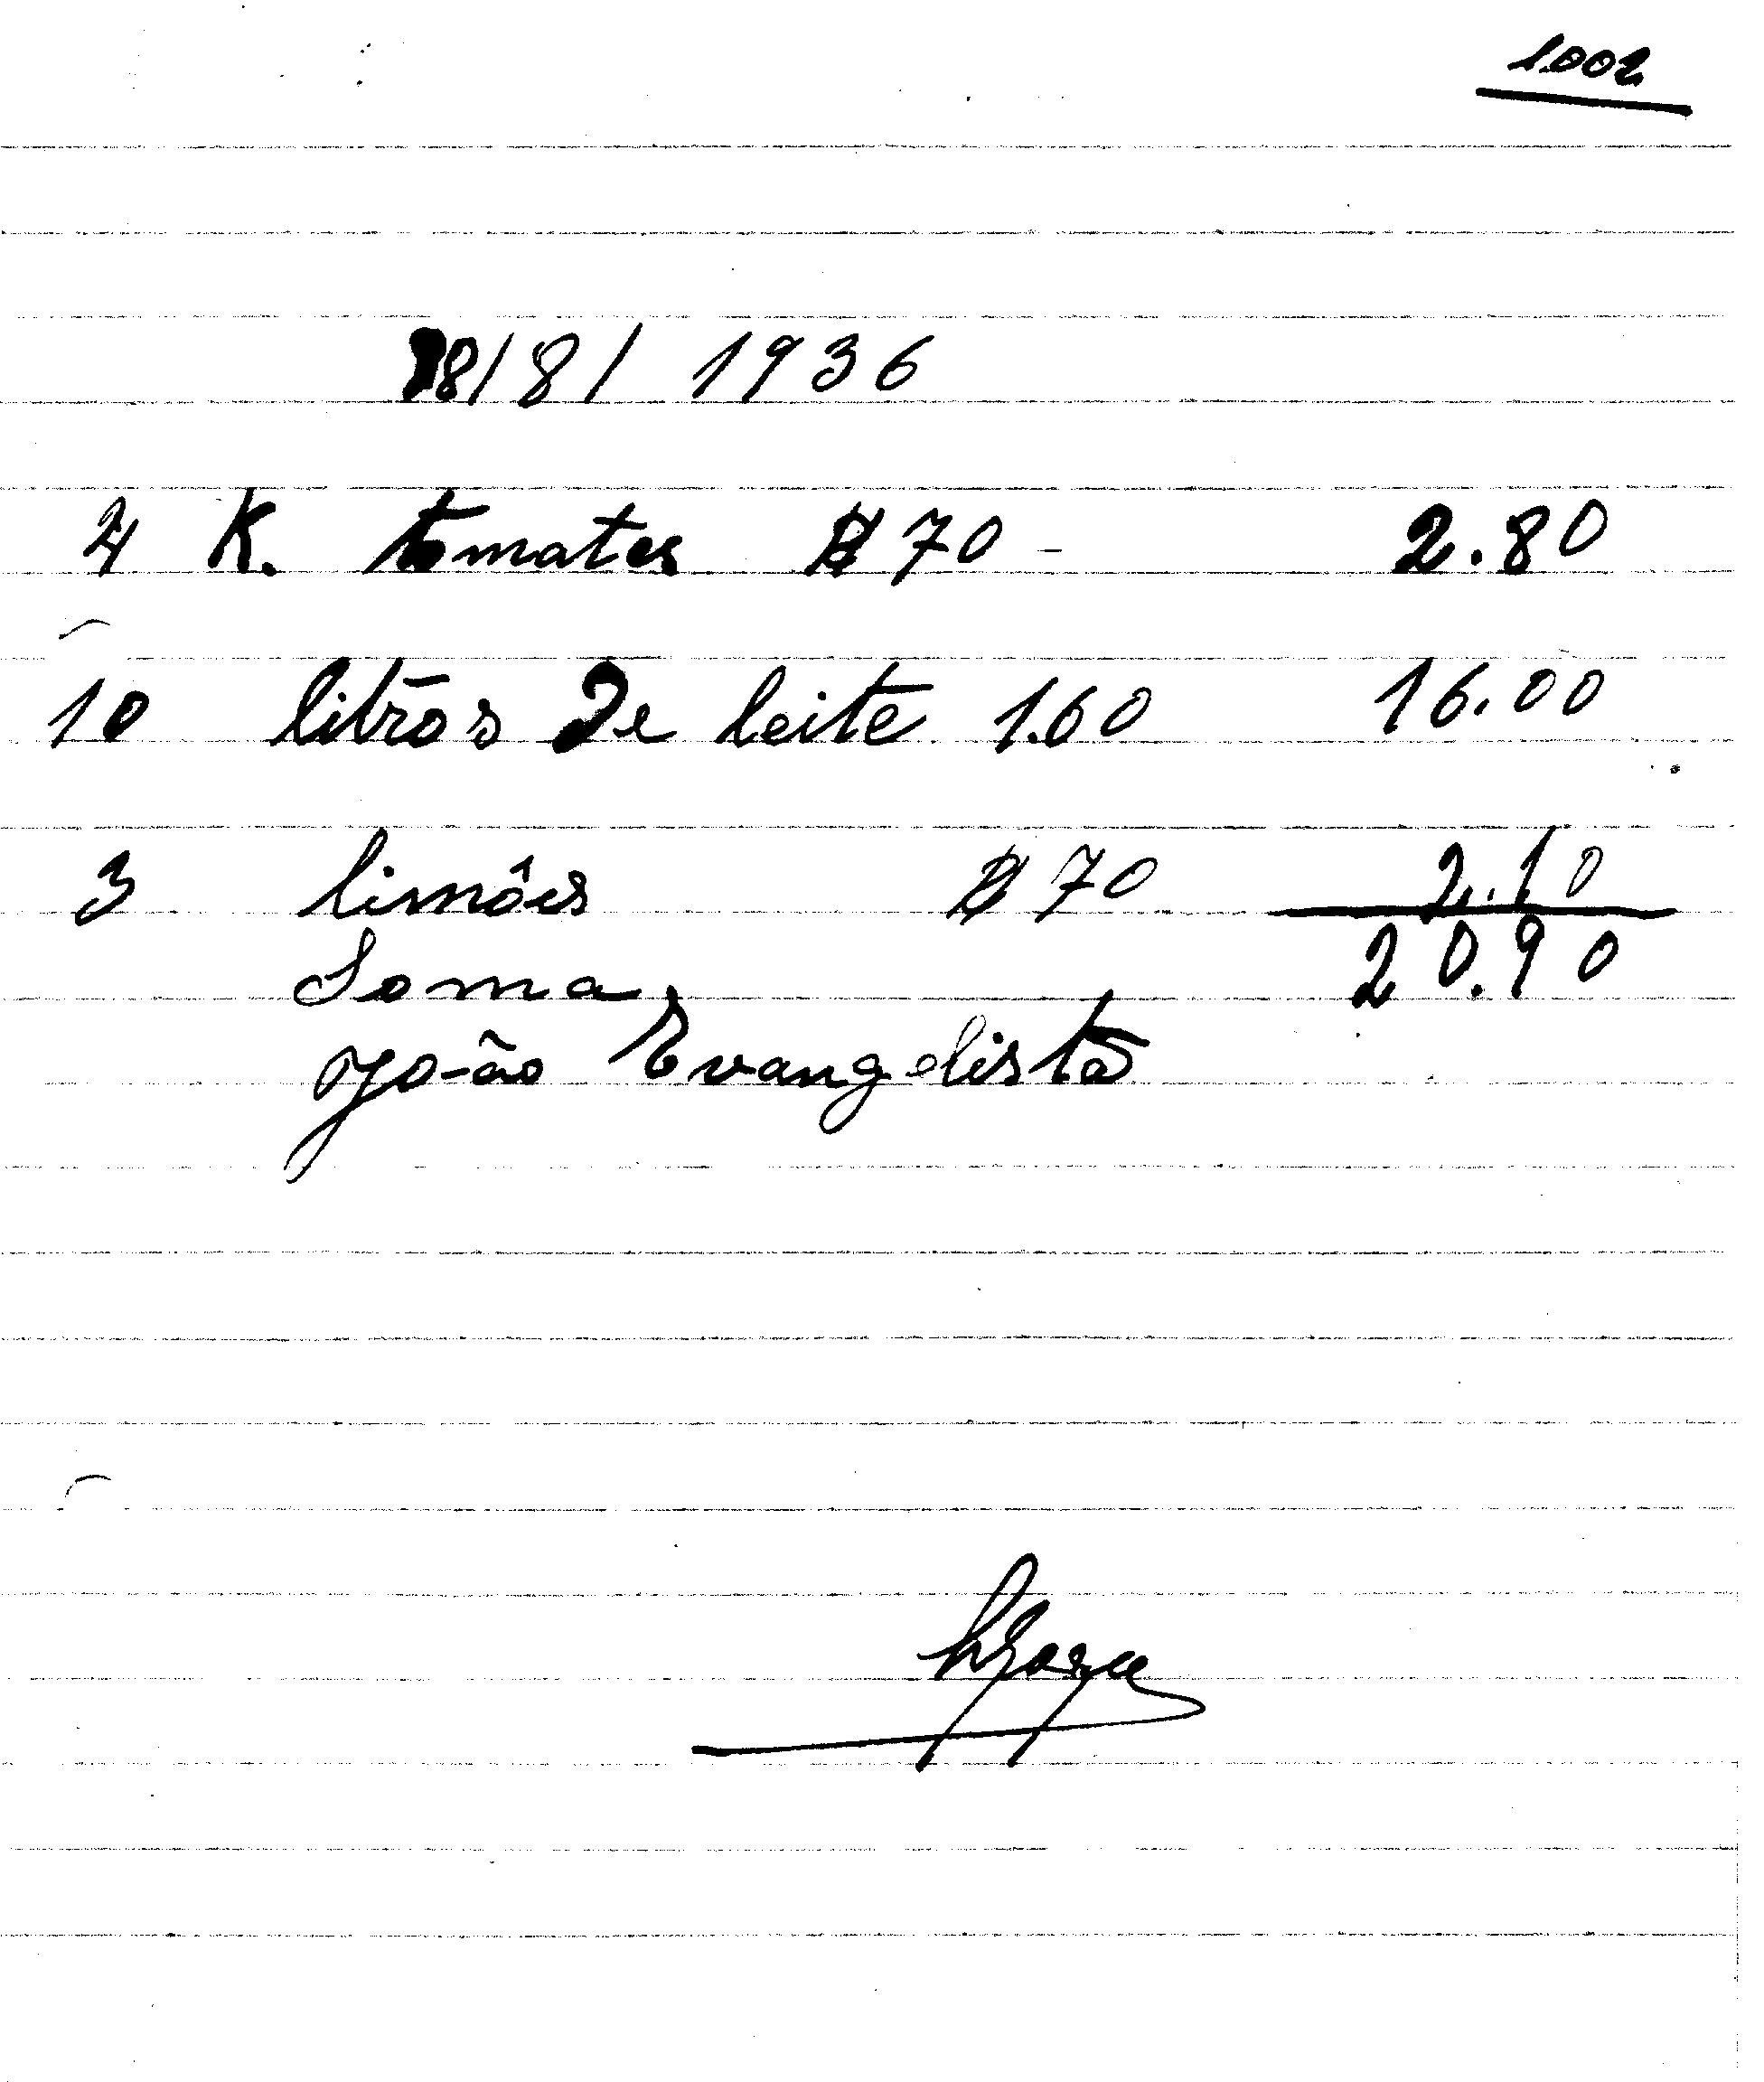 1002
8/8/1936
4 K. tomates $70 - 2.80
10 litros de leite 1.60 16.00
3 limões $70 2.10
Soma 20.90
João Evangelista